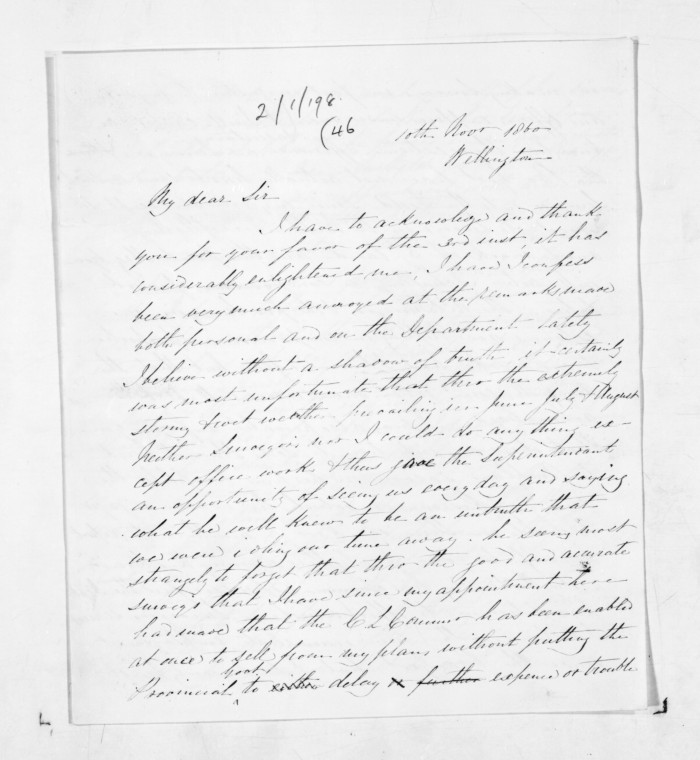 2/1/198.
(46
10th Novr 1860
Wellington
My dear Sir
I have to acknowledge and thank
you for your favor of the 3rd inst, it has
considerably enlightened me, I have I confess
been very much annoyed at the remarks made
both personal and on the Department lately
I believe without a shadow of truth it certainly
was most unfortunate that thro the extremely
stormy & wet weather prevailing in June July & August
Neither Surveyors nor I could do anything ex-
cept office work & thus gave the Superintendant
an opportunity of seeing us everyday and saying
what he well knew to be an untruth that
we were idling our time away. he seems most
strangely to forget that thro the good and accurate
surveys that I have since my appointment here
had made that the C L Commr has been enabled
at once to sell from my plans without putting the
Provincial Govt to either delay or further expence or trouble